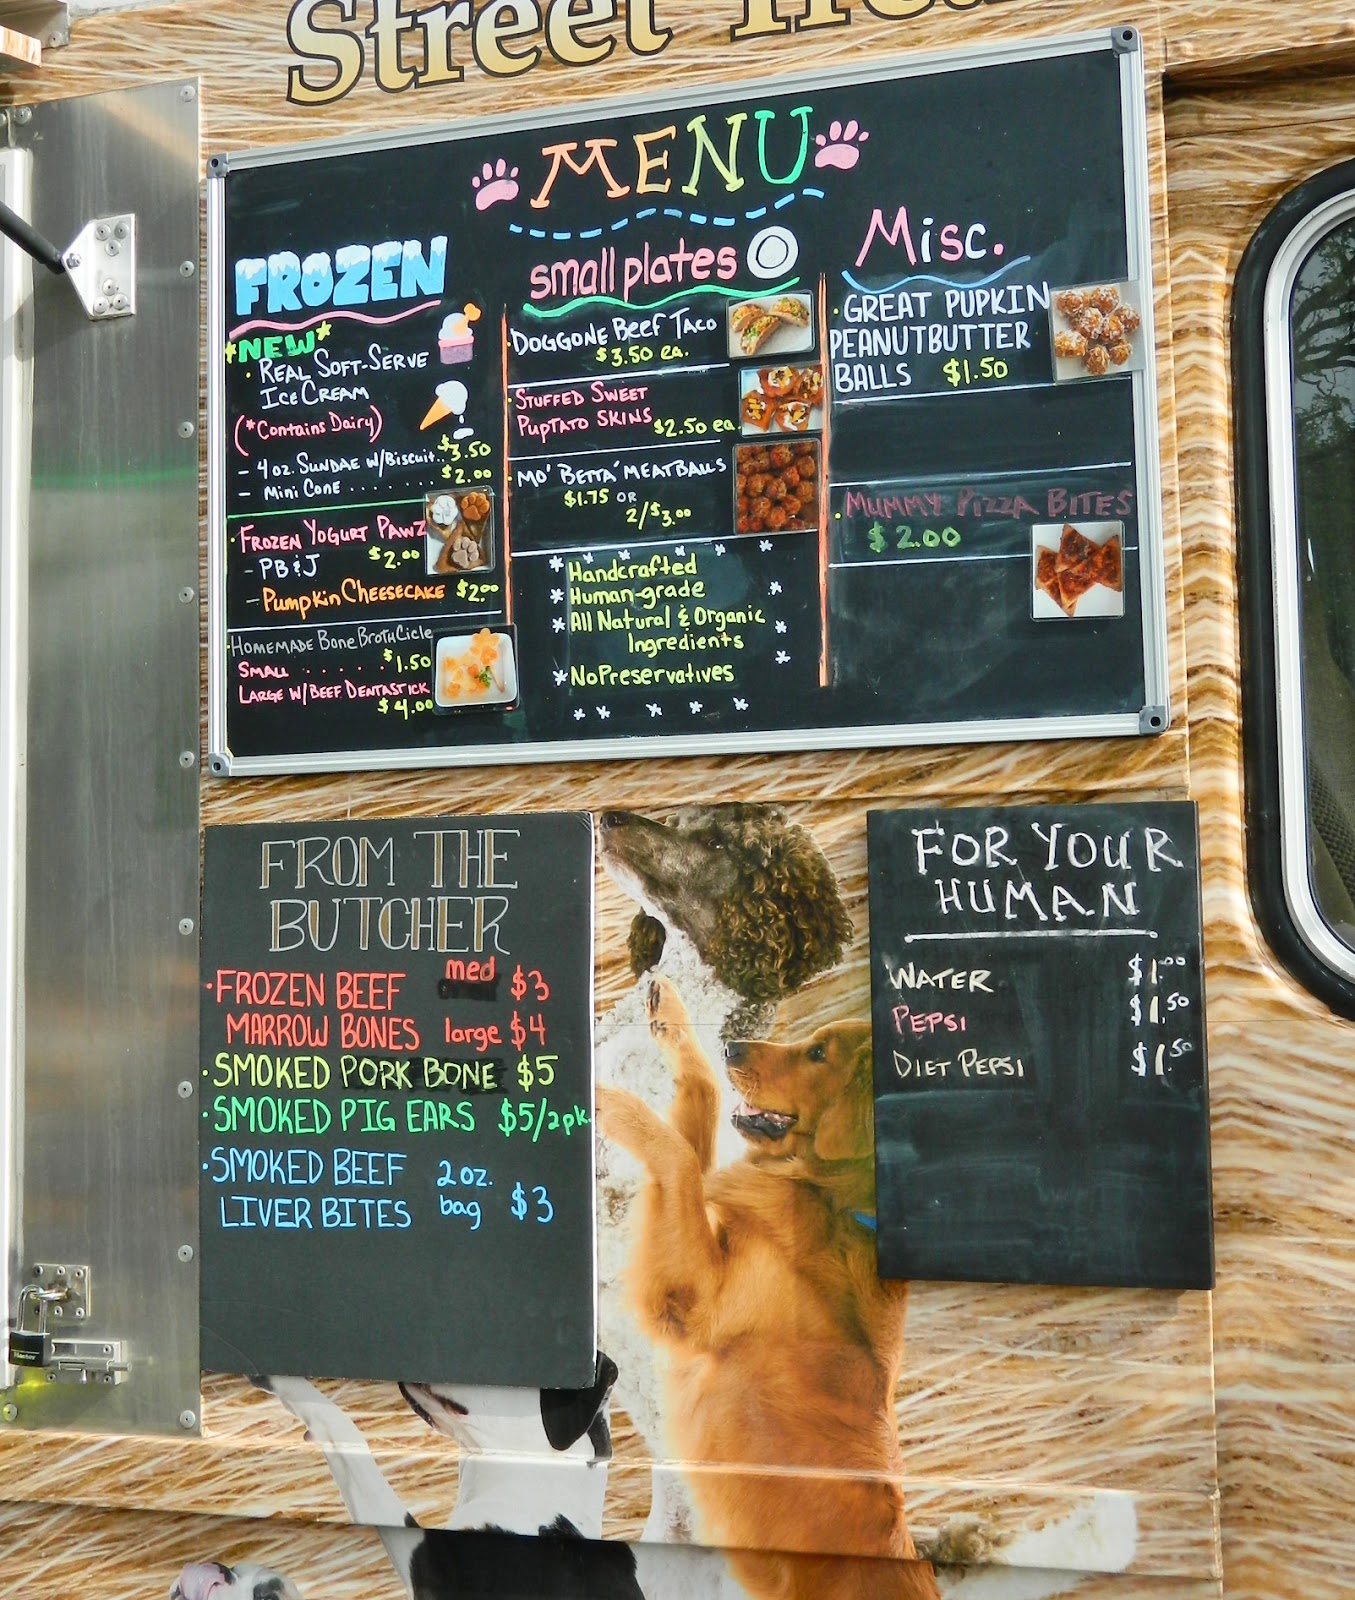 Street
MENU
FROZEN
*NEW*
· REAL SOFT-SERVE
ICE CREAM
(*Contains Dairy)
- 4 oz. SUNDAE W/Biscuit.. $3.50
- MINI CONE . . . . . . . $2.00
· FROZEN YOGURT PAWZ
- PB & J $2.00
- PUMPKIN CHEESECAKE $2.00
· HOMEMADE BONE BROTH CICLE
SMALL . . . . . . $1.50
LARGE W/BEEF DENTASTICK
$4.00
small plates
· DOGGONE BEEF TACO
$3.50 ea.
· STUFFED SWEET
PUPTATO SKINS $2.50 ea.
· MO' BETTA' MEATBALLS
$1.75 OR
2/$3.00
* Handcrafted
* Human-grade
* All Natural & Organic
Ingredients
* No Preservatives
Misc.
· GREAT PUPKIN
PEANUTBUTTER
BALLS $1.50
· MUMMY PIZZA BITES
$2.00
FROM THE
BUTCHER
· FROZEN BEEF med $3
MARROW BONES large $4
· SMOKED PORK BONE $5
· SMOKED PIG EARS $5/2pk.
· SMOKED BEEF 2 oz.
LIVER BITES bag $3
FOR YOUR
HUMAN
WATER $1.00
PEPSI $1.50
DIET PEPSI $1.50
Master